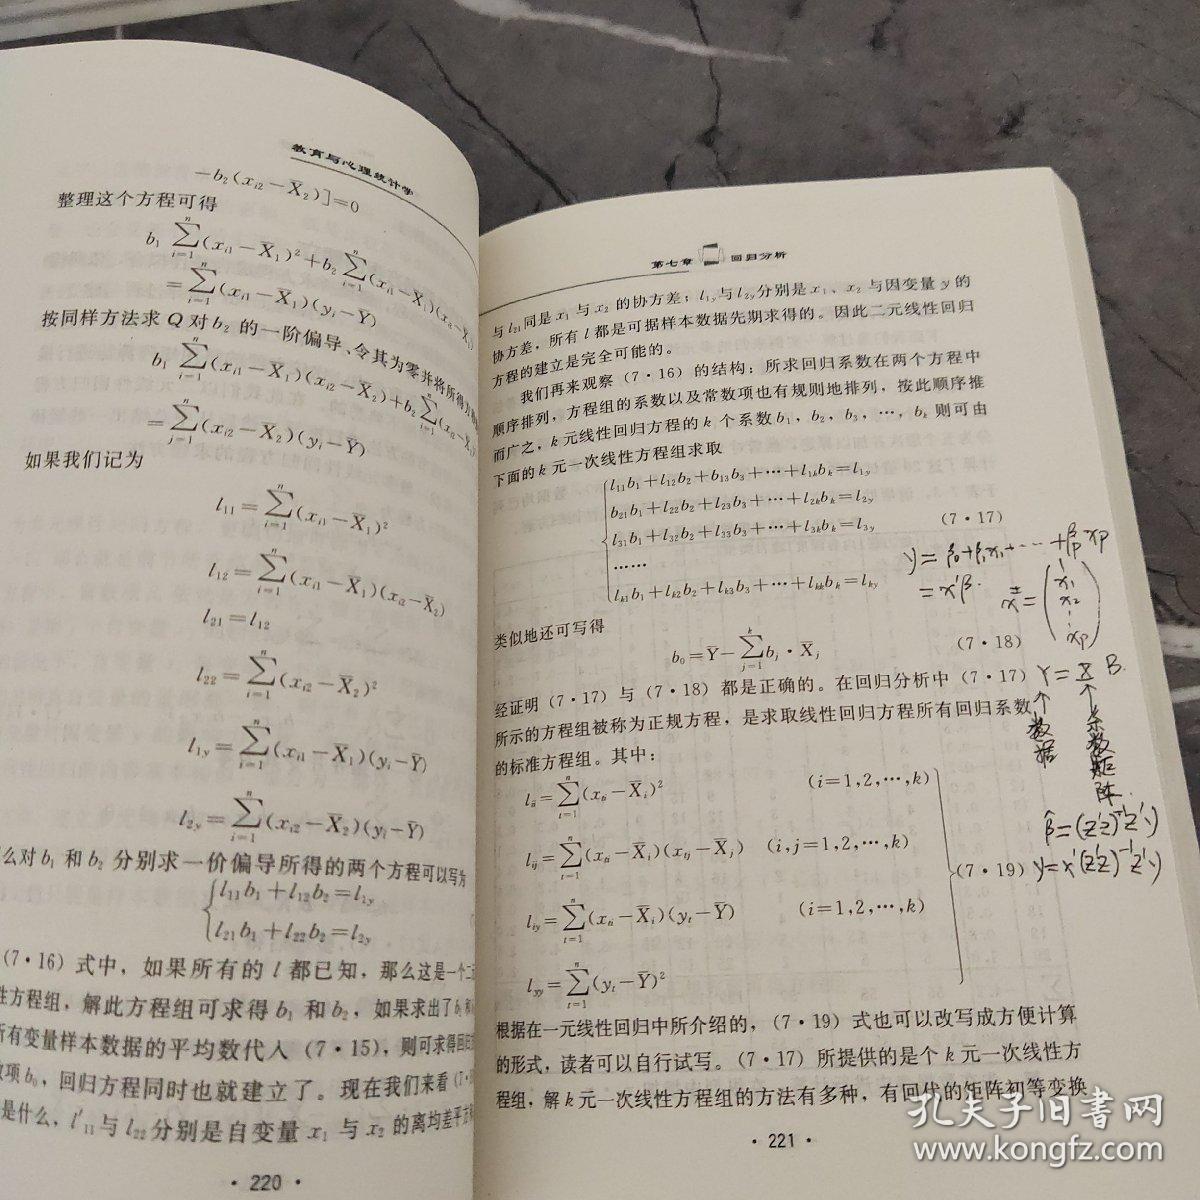 教育与心理统计学
-b₂(xᵢ₂-X̄₂)]=0
整理这个方程可得
b₁∑ⁿᵢ₌₁(xᵢ₁-X̄₁)²+b₂∑ⁿᵢ₌₁(xᵢ₁-X̄₁)(xᵢ₂-X̄₂)
=∑ⁿᵢ₌₁(xᵢ₁-X̄₁)(yᵢ-Ȳ)
按同样方法求 Q 对 b₂ 的一阶偏导、令其为零并将所得方
b₁∑ⁿᵢ₌₁(xᵢ₁-X̄₁)(xᵢ₂-X̄₂)+b₂∑ⁿᵢ₌₁(xᵢ₂-X̄
=∑ⁿⱼ₌₁(xᵢ₂-X̄₂)(yᵢ-Ȳ)
如果我们记为
l₁₁=∑ⁿᵢ₌₁(xᵢ₁-X̄₁)²
l₁₂=∑ⁿᵢ₌₁(xᵢ₁-X̄₁)(xᵢ₂-X̄₂)
l₂₁=l₁₂
l₂₂=∑ⁿᵢ₌₁(xᵢ₂-X̄₂)²
l₁y=∑ⁿᵢ₌₁(xᵢ₁-X̄₁)(yᵢ-Ȳ)
l₂y=∑ⁿᵢ₌₁(xᵢ₂-X̄₂)(yᵢ-Ȳ)
么对 b₁ 和 b₂ 分别求一价偏导所得的两个方程可以写为
l₁₁b₁+l₁₂b₂=l₁y
l₂₁b₁+l₂₂b₂=l₂y
(7·16) 式中，如果所有的 l 都已知，那么这是一个二
性方程组，解此方程组可求得 b₁ 和 b₂，如果求出了 b₁ 和
所有变量样本数据的平均数代人 (7·15)，则可求得回
项 b₀，回归方程同时也就建立了。现在我们来看 (7·
是什么，l′₁₁ 与 l₂₂ 分别是自变量 x₁ 与 x₂ 的离均差平方
· 220 ·
第七章 回归分析
与 l₂₁ 同是 x₁ 与 x₂ 的协方差；l₁y 与 l₂y 分别是 x₁、x₂ 与因变量 y 的
协方差，所有 l 都是可据样本数据先期求得的。因此二元线性回归
方程的建立是完全可能的。
我们再来观察 (7·16) 的结构：所求回归系数在两个方程中
顺序排列，方程组的系数以及常数项也有规则地排列，按此顺序推
而广之，k 元线性回归方程的 k 个系数 b₁，b₂，b₃，…，bₖ 则可由
下面的 k 元一次线性方程组求取
l₁₁b₁+l₁₂b₂+b₁₃b₃+…+l₁ₖbₖ=l₁y
b₂₁b₁+l₂₂b₂+l₂₃b₃+…+l₂ₖbₖ=l₂y
l₃₁b₁+l₃₂b₂+l₃₃b₃+…+l₃ₖbₖ=l₃y (7·17)
……
lₖ₁b₁+lₖ₂b₂+lₖ₃b₃+…+lₖₖbₖ=lₖy
y=β₀+β₁x₁+…+βₚxₚ
=x′β. x=(1 x₁ x₂ ⋮ xₚ)
类似地还可写得
b₀=Ȳ-∑ᵏⱼ₌₁bⱼ·X̄ⱼ (7·18)
经证明 (7·17) 与 (7·18) 都是正确的。在回归分析中 (7·17)
所示的方程组被称为正规方程，是求取线性回归方程所有回归系数
的标准方程组。其中：
Y=X B.
↑数据 ↑系数矩阵.
lᵢᵢ=∑ⁿₜ₌₁(xₜᵢ-X̄ᵢ)² (i=1,2,…,k)
lᵢⱼ=∑ⁿₜ₌₁(xₜᵢ-X̄ᵢ)(xₜⱼ-X̄ⱼ) (i,j=1,2,…,k)
(7·19)
lᵢy=∑ⁿₜ₌₁(xₜᵢ-X̄ᵢ)(yₜ-Ȳ) (i=1,2,…,k)
lyy=∑ⁿₜ₌₁(yₜ-Ȳ)²
β̂=(Z′Z)⁻¹Z′y)
y=x′(Z′Z)⁻¹Z′y)
根据在一元线性回归中所介绍的，(7·19) 式也可以改写成方便计算
的形式，读者可以自行试写。(7·17) 所提供的是个 k 元一次线性方
程组，解 k 元一次线性方程组的方法有多种，有回代的矩阵初等变换
· 221 ·
孔夫子旧书网
www.kongfz.com